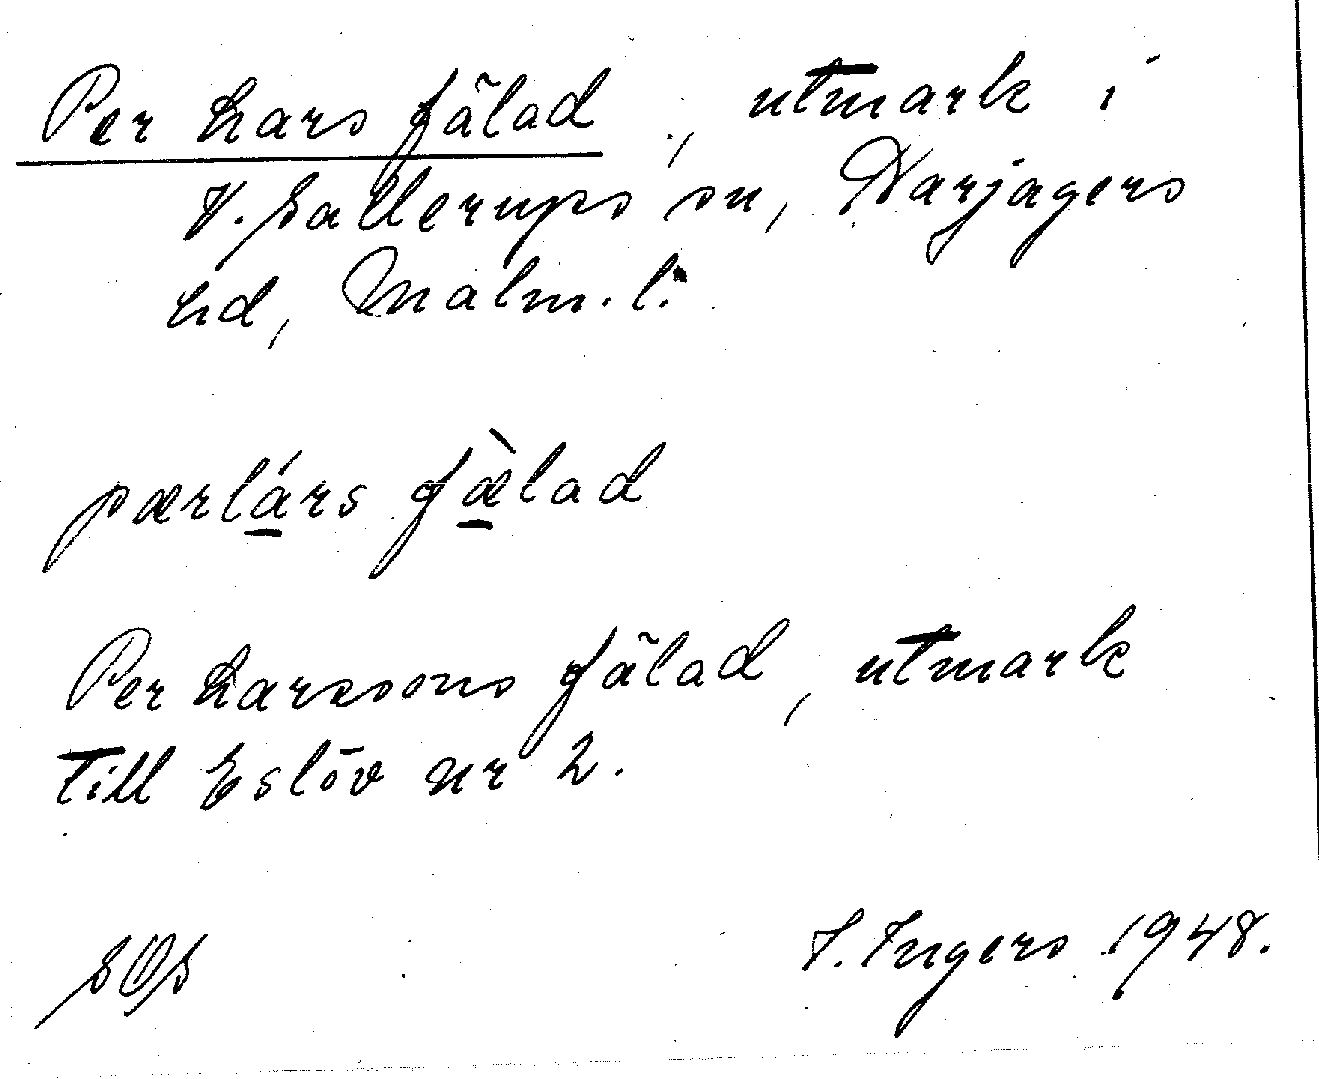 Per Lars fälad, utmark i
V. Sallerups sn, Harjagers
hd, Malm. l.
pærlárs fæ̀lad
Per Larssons fälad, utmark
till Eslöv nr 2.
SOS I. Ingers 1948.